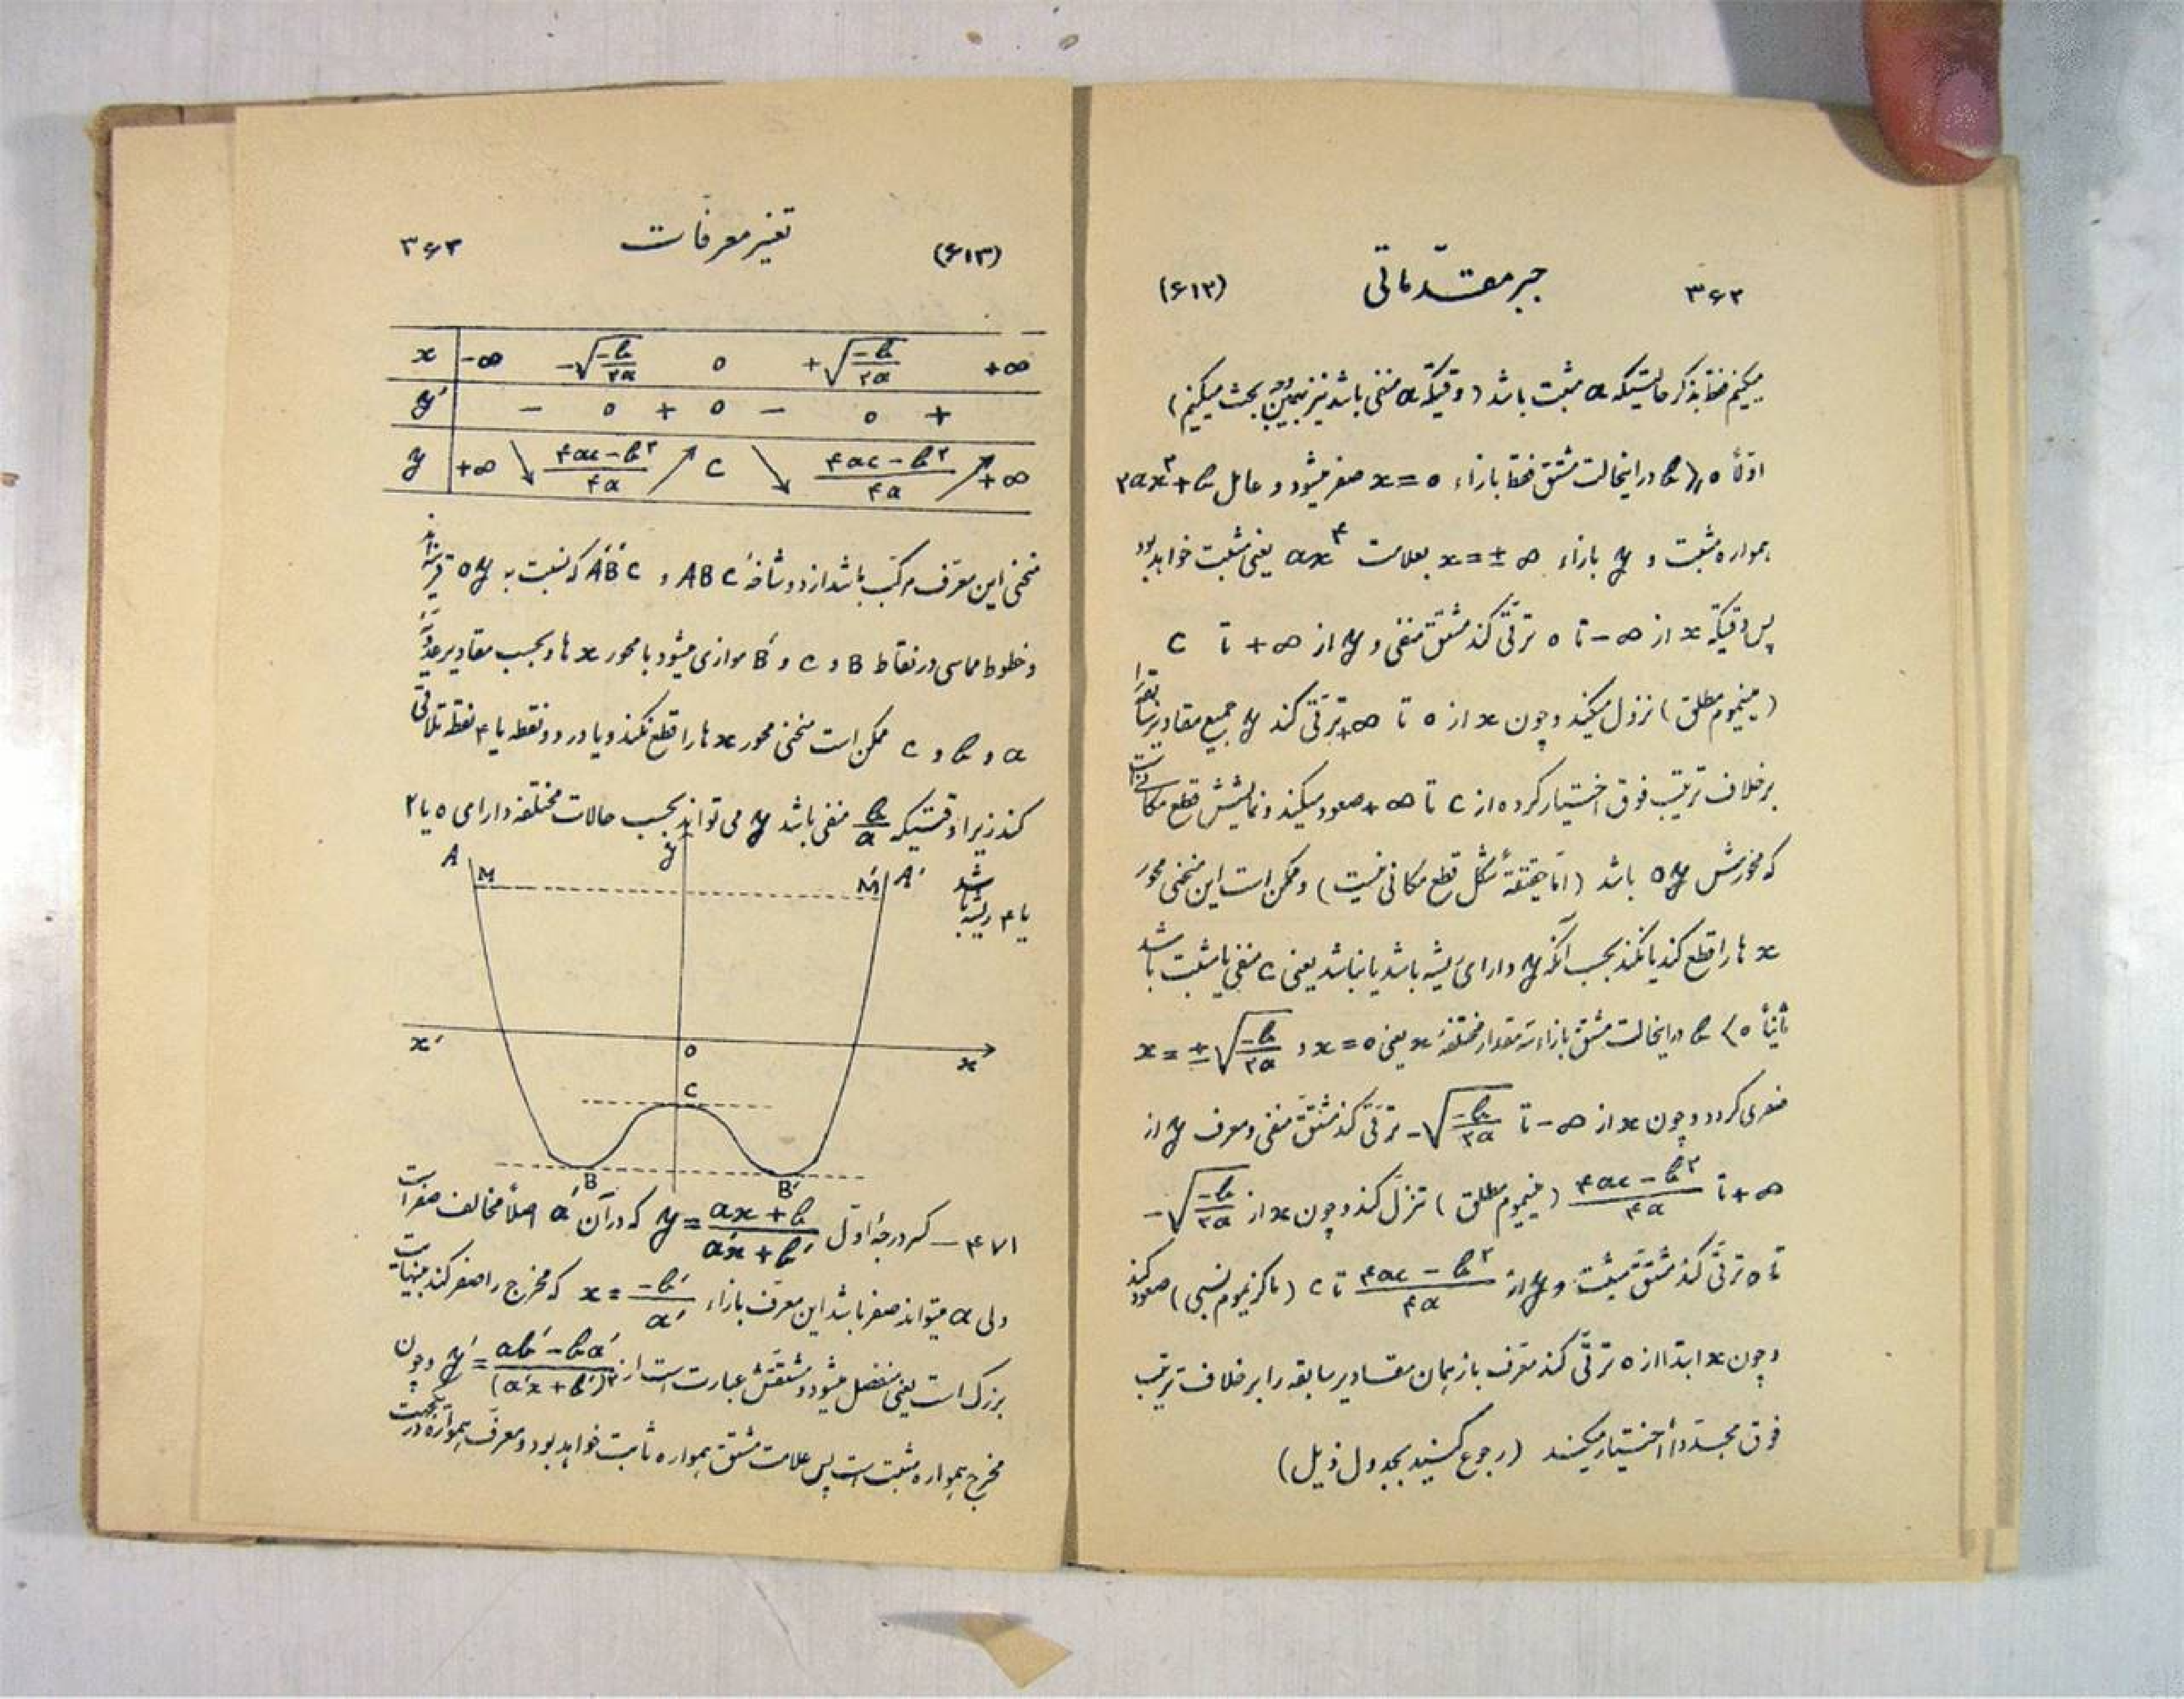 ۳۶۲ جبر مقدّماتی (۶۱۲)
میکنیم فقط بذکر حالتیکه a مثبت باشد (وقتیکه a منفی باشد نیز بهمین بحث میکنیم)
اوّلاً b ⩾ 0 در اینحالت مشتق فقط بازاء x = 0 صفر میشود و عامل ۲ax²+b
همواره مثبت و y بازاء x = ± ∞ بعلامت ax⁴ یعنی مثبت خواهد بود
پس وقتیکه x از ∞ - تا 0 ترقّی کند مشتق منفی و y از ∞ + تا c
(مینیموم مطلق) نزول میکند و چون x از 0 تا ∞+ ترقّی کند y جمیع مقادیر سابقه را
برخلاف ترتیب فوق اختیار کرده از c تا ∞ + صعود میکند و نمایشش قطع مکافی است
که محورش oy باشد (امّا حقیقةً شکل قطع مکافی نیست) و ممکن است این منحنی محور
x ها را قطع کند یا نکند بحسب آنکه y دارای ریشه باشد یا نباشد یعنی c منفی یا مثبت باشد
ثانیاً b < 0 در اینحالت مشتق بازاء سه مقدار مختلفهٔ x یعنی x = 0 و x = ± √(-b/۲a)
صفر می‌گردد و چون x از ∞ - تا -√(-b/۲a) ترقّی کند مشتق منفی و معرف y از
∞ + تا (۴ac - b²)/۴a (مینیموم مطلق) تنزّل کند و چون x از -√(-b/۲a)
تا 0 ترقّی کند مشتق مثبت و y از (۴ac - b²)/۴a تا c (ماکزیموم نسبی) صعود کند
و چون x ابتدا از 0 ترقّی کند معرف باز همان مقادیر سابقه را برخلاف ترتیب
فوق مجدّداً اختیار میکند (رجوع کنید بجدول ذیل)
(۶۱۳) تغییر معرفات ۳۶۳
x | -∞ -√(-b/۲a) 0 +√(-b/۲a) +∞
y′ | - 0 + 0 - 0 +
y | +∞ ↘ (۴ac-b²)/۴a ↗ c ↘ (۴ac-b²)/۴a ↗ +∞
منحنی این معرّف مرکب باشد از دو شاخهٔ ABC و A′B′C که نسبت به oy قرینه‌اند
و خطوط مماسی در نقاط B و C و B′ موازی میشود با محور x ها و بحسب مقادیر عددیّهٔ
a و b و c ممکن است منحنی محور x ها را قطع نکند و یا در دو نقطه یا ۴ نقطه تلاقی
کند زیرا وقتیکه b/a منفی باشد y می تواند بحسب حالات مختلفه دارای ۰ یا ۲
یا ۴ ریشه باشد
y
A M M′ A′
x′ o x
C
B B′
۴۷۱ — کسر درجهٔ اوّل y = (ax + b)/(a′x + b′) که در آن a′ اصلاً مخالف صفر است
ولی a میتواند صفر باشد این معرّف بازاء x = -b′/a′ که مخرج را صفر کند بینهایت
بزرگ است یعنی منفصل میشود و مشتقش عبارت است از y′ = (ab′ - ba′)/(a′x + b′)² و چون
مخرج همواره مثبت است پس علامت مشتق همواره ثابت خواهد بود و معرف همواره در یکجهت